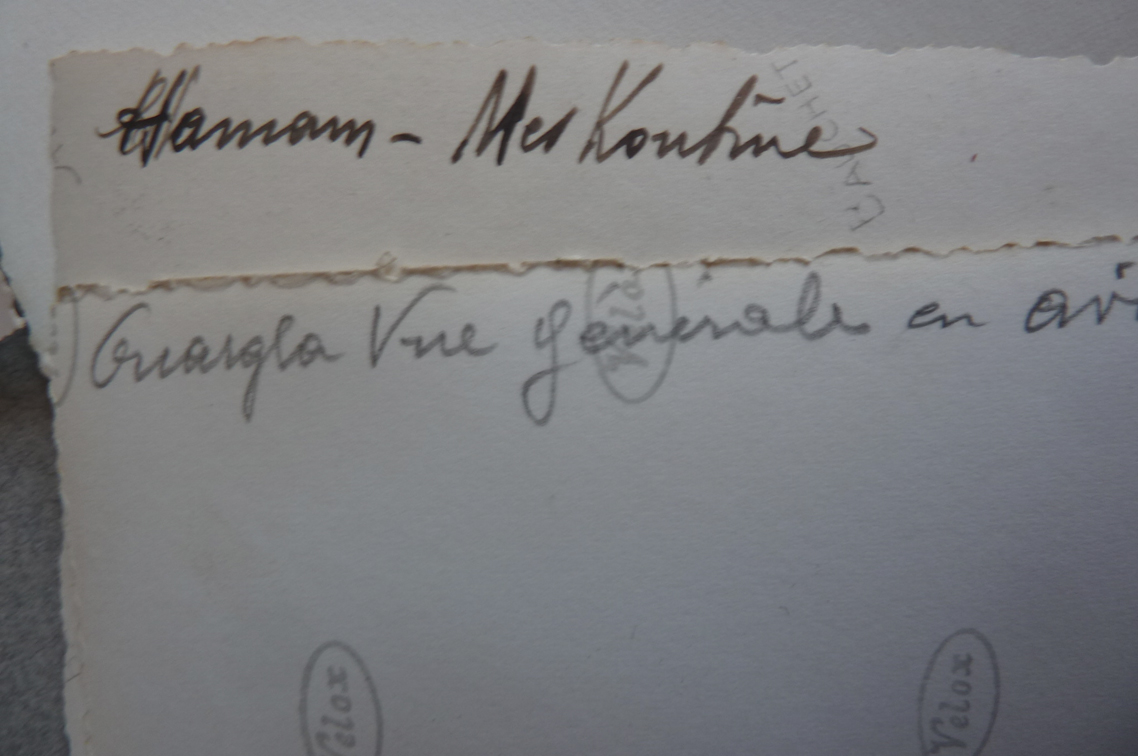 Hamam - Mes Koutine
GUILCHET
Ouargla Vue générale en avi
Velox
Velox
Velox